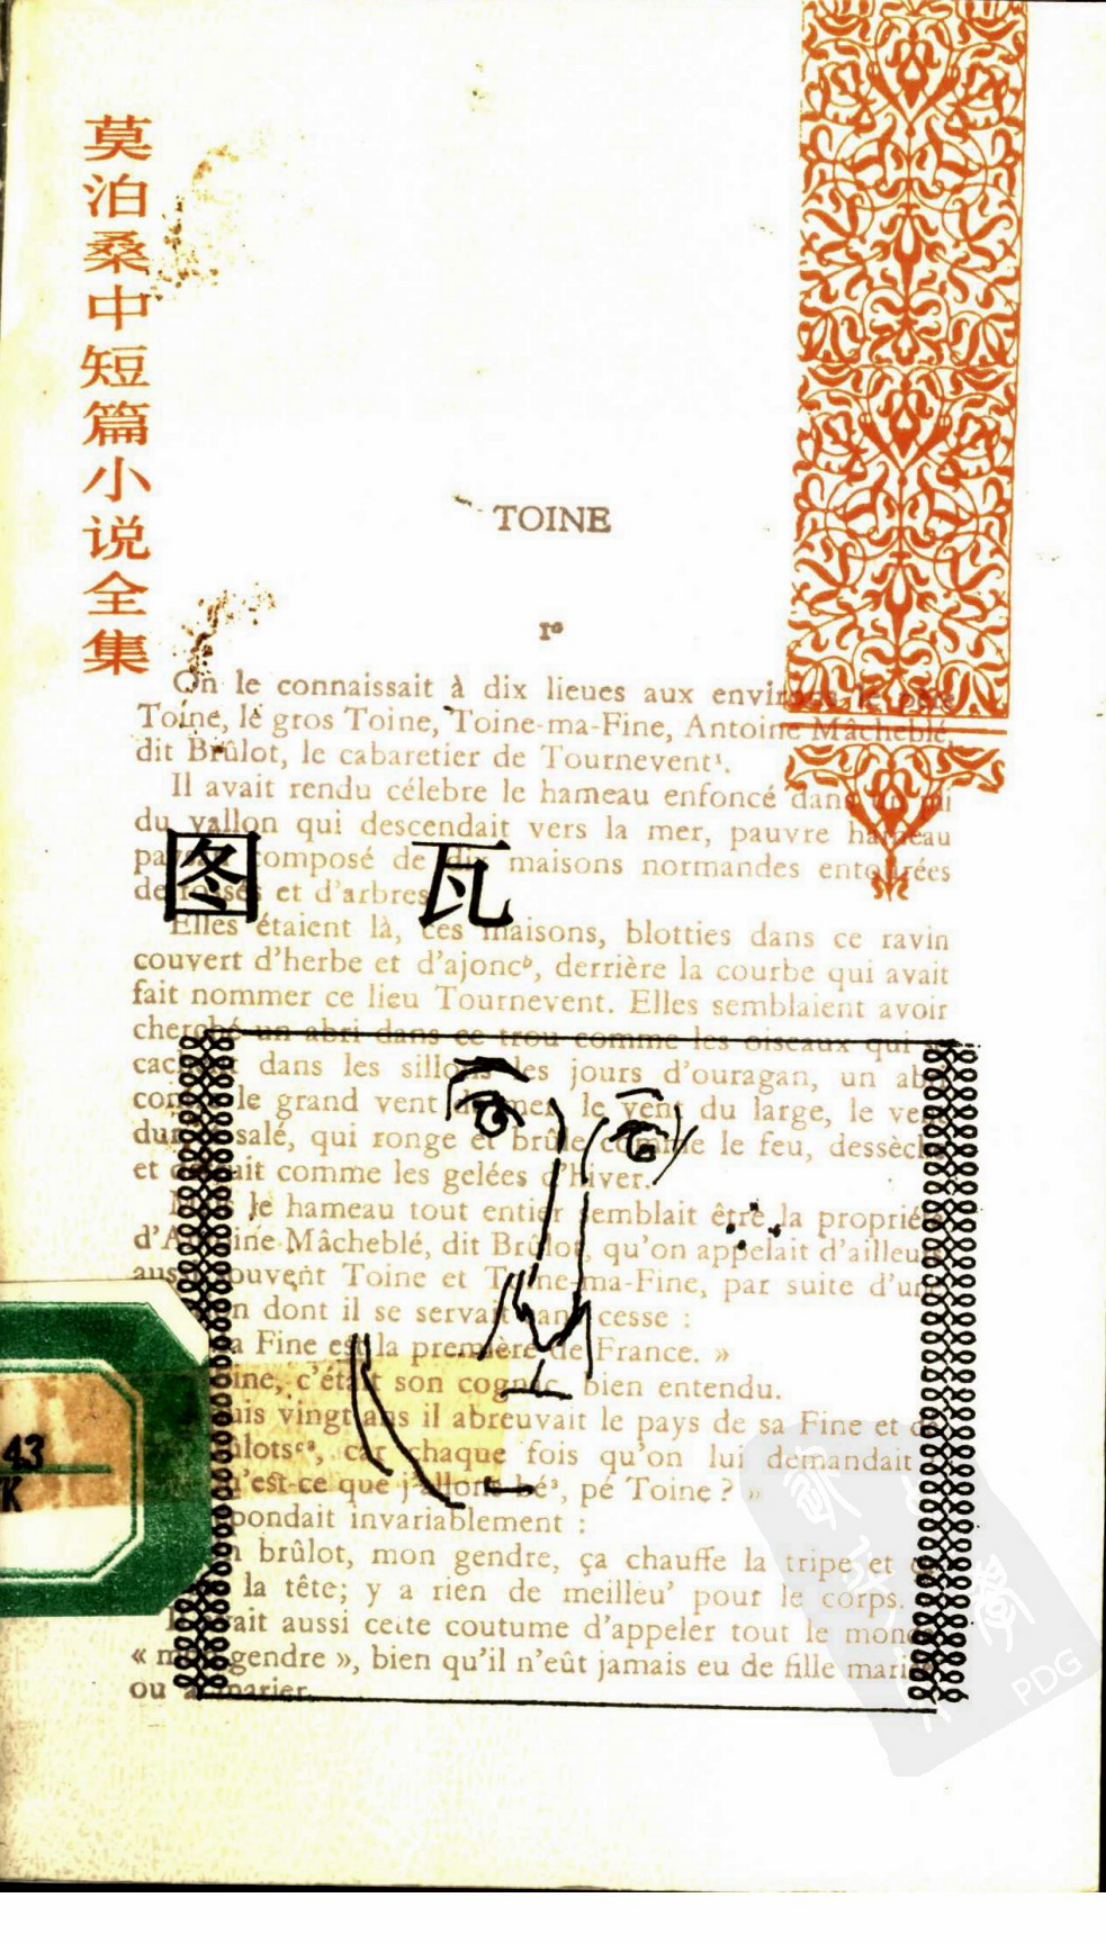 莫泊桑中短篇小说全集
TOINE
I
On le connaissait à dix lieues aux environs le père
Toine, le gros Toine, Toine-ma-Fine, Antoine Mâcheblé,
dit Brûlot, le cabaretier de Tournevent¹.
Il avait rendu célebre le hameau enfoncé dans un pli
du vallon qui descendait vers la mer, pauvre hameau
paysan composé de dix maisons normandes entourées
de fossés et d'arbres
图瓦
Elles étaient là, ces maisons, blotties dans ce ravin
couvert d'herbe et d'ajoncᵇ, derrière la courbe qui avait
fait nommer ce lieu Tournevent. Elles semblaient avoir
cherché un abri dans ce trou comme les oiseaux qui se
cachent dans les sillons les jours d'ouragan, un abri
contre le grand vent de mer, le vent du large, le vent
dur salé, qui ronge et brûle comme le feu, dessèche
et détruit comme les gelées d'hiver.
Mais le hameau tout entier semblait être la propriété
d'Antoine Mâcheblé, dit Brûlot, qu'on appelait d'ailleurs
aussi souvent Toine et Toine-ma-Fine, par suite d'une
dont il se servait sans cesse :
Fine est la première de France. »
c'était son cognac, bien entendu.
vingt ans il abreuvait le pays de sa Fine et de
car chaque fois qu'on lui demandait
qu'est-ce que j'allons bé³, pé Toine ? »
pondait invariablement :
brûlot, mon gendre, ça chauffe la tripe et
la tête; y a rien de meilleu' pour le corps.
Il avait aussi cette coutume d'appeler tout le monde
« mon gendre », bien qu'il n'eût jamais eu de fille mariée
ou à marier.
43
K
PDG